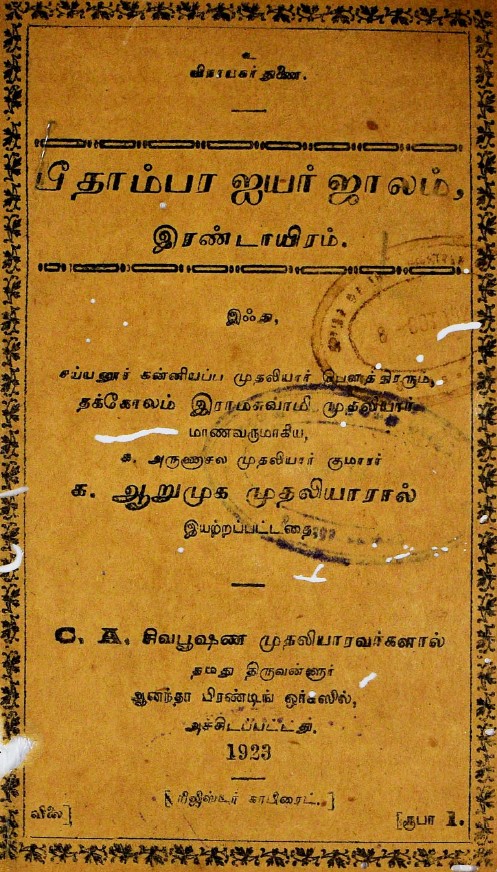 உ
விநாயகர் துணை.
பீதாம்பர ஐயர் ஜாலம்,
இரண்டாயிரம்.
இஃது,
சய்யனூர் கன்னியப்ப முதலியார் பௌத்திரரும்,
தக்கோலம் இராமசுவாமி முதலியார்
மாணவருமாகிய,
க. அருணாசல முதலியார் குமாரர்
க. ஆறுமுக முதலியாரால்
இயற்றப்பட்டதை
C. A. சிவபூஷண முதலியாரவர்களால்
தமது திருவண்ளூர்
ஆனந்தா பிரண்டிங் ஒர்க்ஸில்,
அச்சிடப்பட்டது.
1923
[ரிஜிஸ்டர் காபிரைட்.]
விலை] [ரூபா 1.
8 OCT